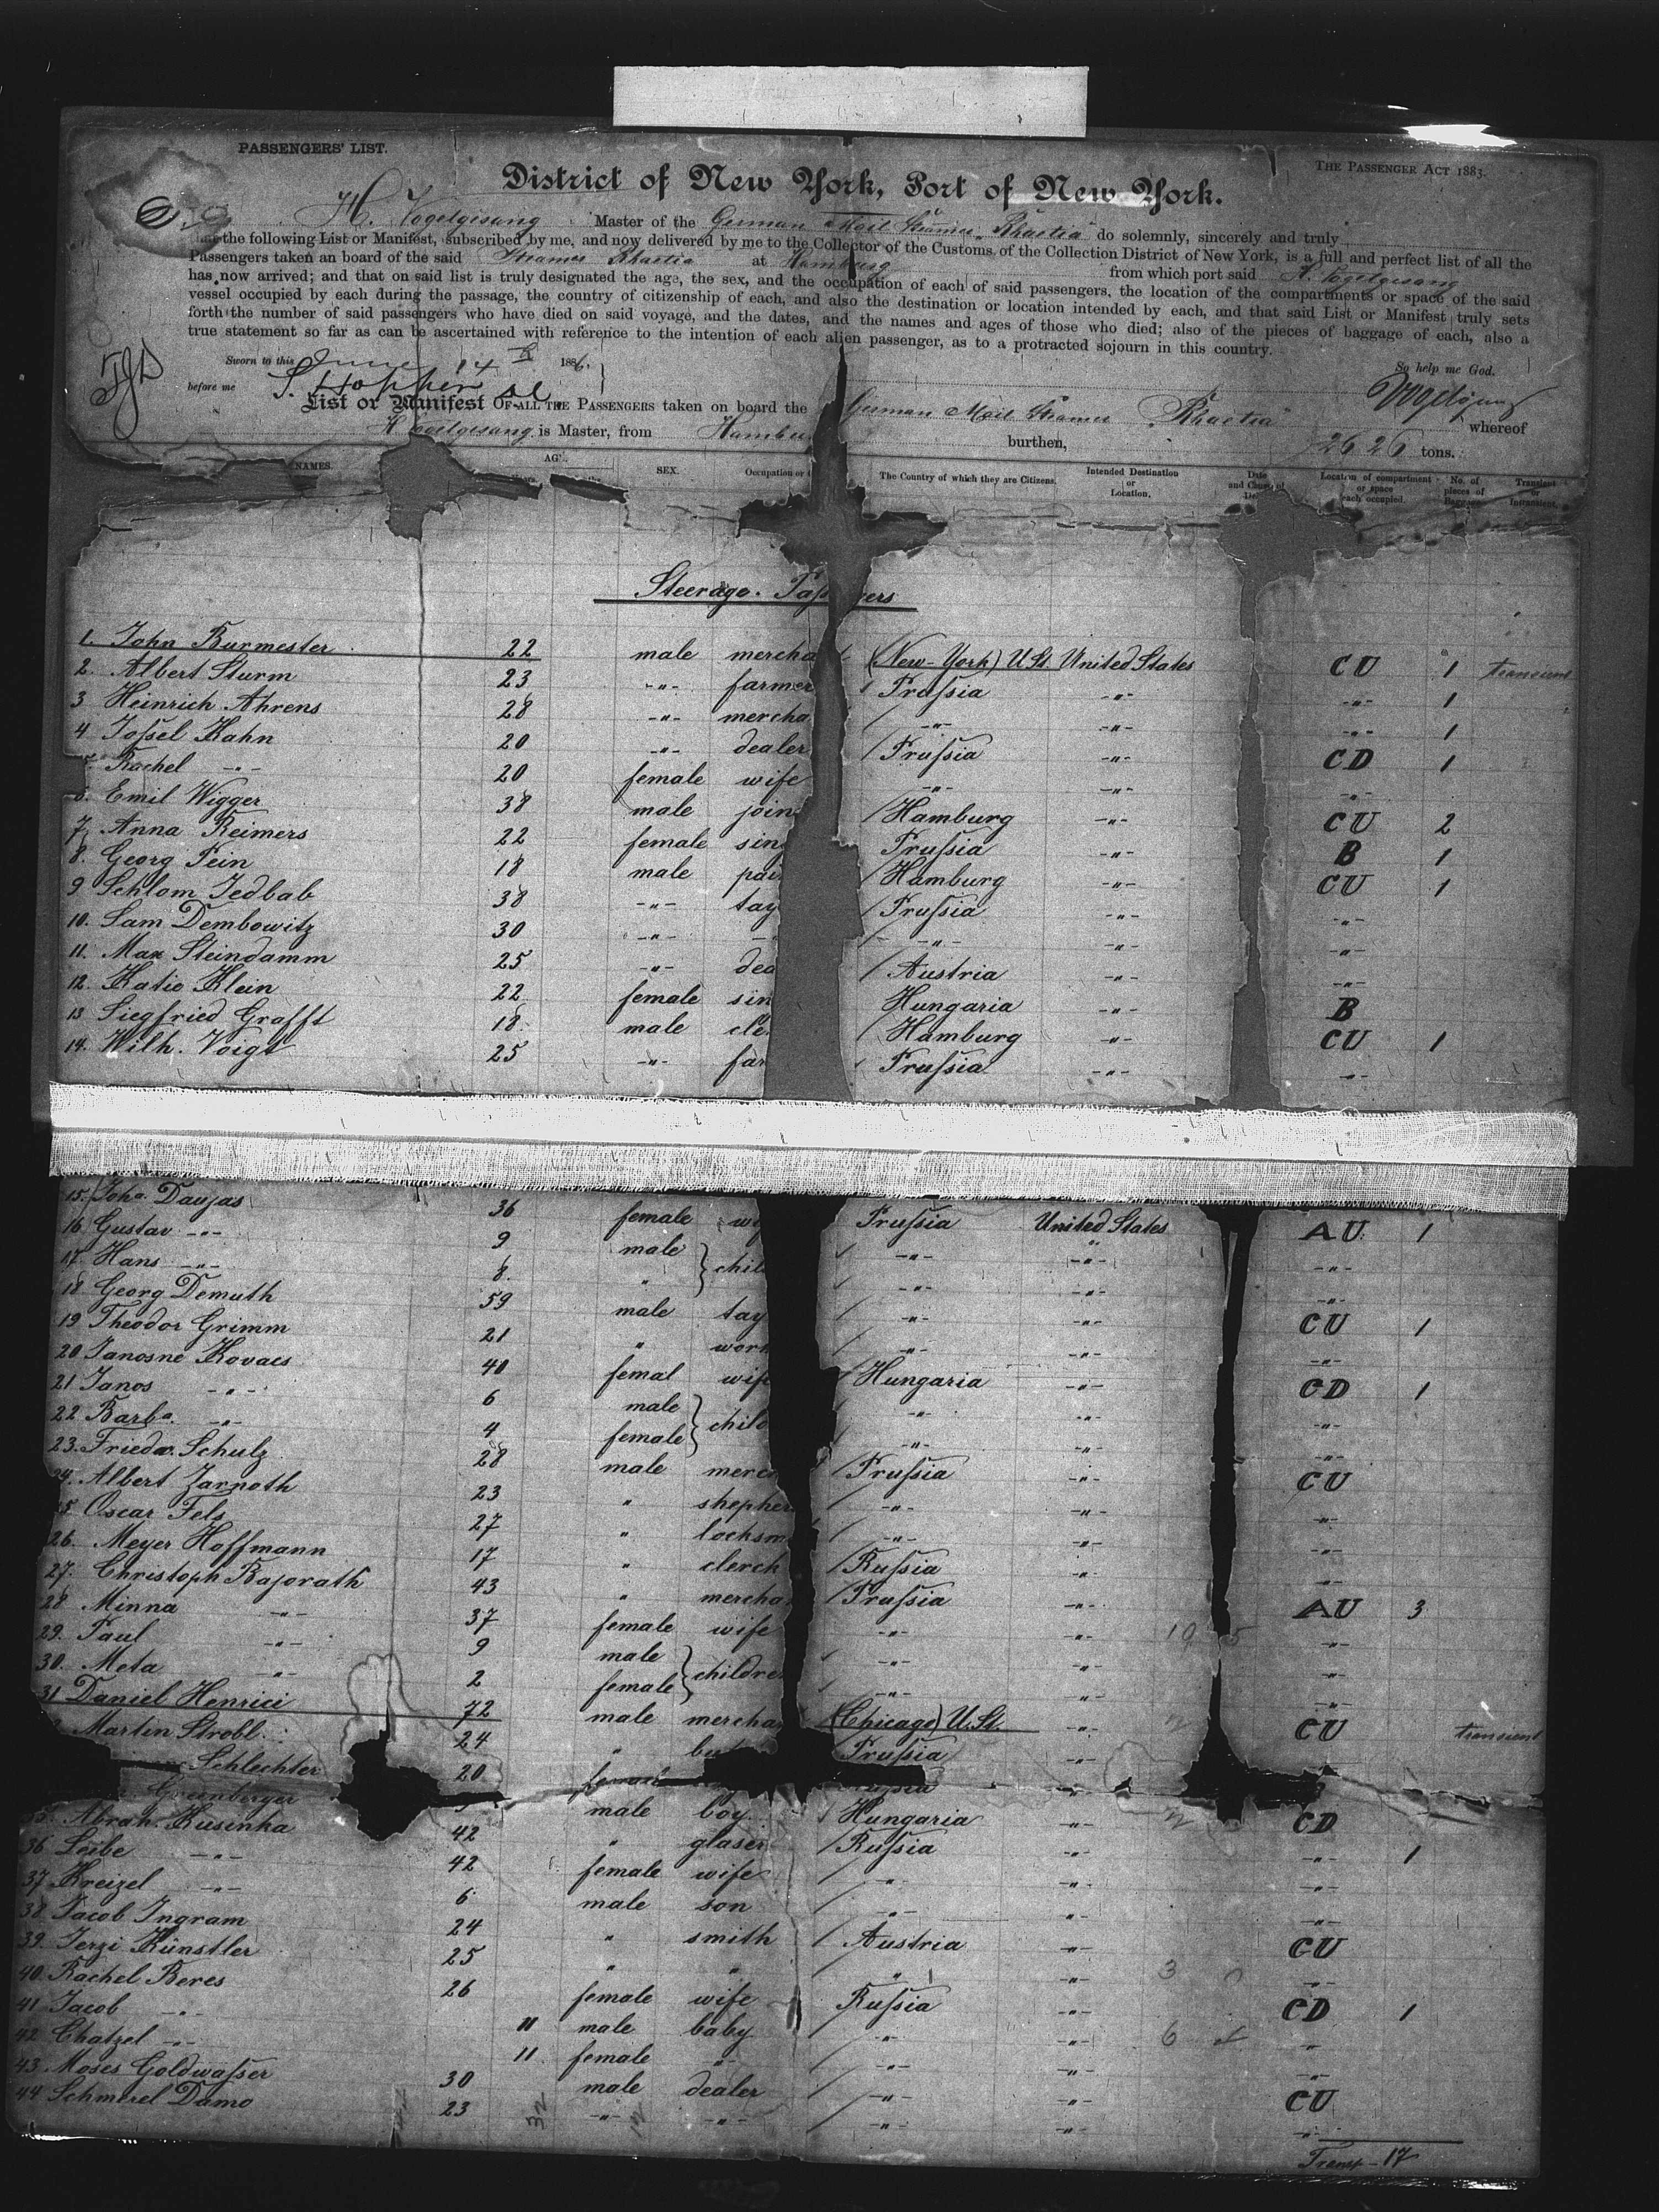 PASSENGERS' LIST.
THE PASSENGER ACT 1883.
District of New York, Port of New York.
H. Vogelgesang Master of the German Mail Steamer "Rhaetia" do solemnly, sincerely and truly
that the following List or Manifest, subscribed by me, and now delivered by me to the Collector of the Customs of the Collection District of New York, is a full and perfect list of all the
Passengers taken an board of the said Steamer Rhaetia at Hamburg from which port said H. Vogelgesang
has now arrived; and that on said list is truly designated the age, the sex, and the occupation of each of said passengers, the location of the compartments or space of the said
vessel occupied by each during the passage, the country of citizenship of each, and also the destination or location intended by each, and that said List or Manifest truly sets
forth the number of said passengers who have died on said voyage, and the dates, and the names and ages of those who died; also of the pieces of baggage of each, also a
true statement so far as can be ascertained with reference to the intention of each alien passenger, as to a protracted sojourn in this country.
Sworn to this June 14th 1886. So help me God.
before me S. Hopper Vogelgesang
List or Manifest OF ALL THE PASSENGERS taken on board the German Mail Steamer "Rhaetia" whereof
H Vogelgesang is Master, from Hambu burthen, 2626 tons.
NAMES. AG SEX. Occupation or The Country of which they are Citizens. Intended Destination or Location. Date and Cause of De Location of compartment or space each occupied. No. of pieces of Baggage Transient or Intransient.
Steerage. Pass gers
1. John Burmester 22 male mercha (New-York) U.St. United States CU 1 transient
2. Albert Sturm 23 -"- farmer Prussia -"- -"- 1
3 Heinrich Ahrens 28 -"- mercha -"- -"- -"- 1
4 Jossel Kahn 20 -"- dealer Prussia -"- CD 1
Rachel -"- 20 female wife -"- -"- -"-
6. Emil Wigger 38 male join Hamburg -"- CU 2
7. Anna Reimers 22 female sin Prussia -"- B 1
8. Georg Pein 18 male pai Hamburg -"- CU 1
9 Schlom Jedbab 38 -"- tay Prussia -"- -"-
10. Sam Dembowitz 30 -"- -"- -"- -"-
11. Max Steindamm 25 -"- dea Austria -"- -"-
12. Katie Klein 22 female sin Hungaria -"- B
13 Siegfried Grafft 18 male cle Hamburg -"- CU 1
14. Wilh. Voigt 25 -"- far Prussia -"- -"-
15. Joha. Daujas 36 female wi Prussia United States AU 1
16 Gustav -"- 9 male -"- -"- -"-
17. Hans -"- 8. " chil -"- -"- -"-
18 Georg Demuth 59 male tay -"- -"- CU 1
19 Theodor Grimm 21 " wor -"- -"- -"-
20 Janosne Kovacs 40 femal wif Hungaria -"- CD 1
21 Janos -"- 6 male -"- -"- -"-
22 Barba. -"- 4 female child -"- -"- -"-
23. Friedr. Schulz 28 male merc Prussia -"- CU
24. Albert Zarnoth 23 " shepher -"- -"- -"-
25 Oscar Fels 27 " locksm -"- -"- -"-
26. Meyer Hoffmann 17 " clerck Russia -"- -"-
27. Christoph Bajorath 43 " mercha Prussia -"- AU 3
28 Minna -"- 37 female wife -"- -"- -"-
29. Paul -"- 9 male -"- -"- -"-
30. Meta -"- 2 female childre -"- -"- -"-
31 Daniel Henrici 72 male mercha (Chicago) U.St. -"- CU transient
Martin Strobl 24 " but Prussia -"-
Schlechter 20
Greenberger male boy Hungaria -"- CD
35. Abrah. Kusinka 42 " glaser Russia -"- -"- 1
36 Leibe -"- 42 female wife " -"- -"-
37 Kreizel -"- 6 male son -"- -"- -"-
38 Jacob Ingram 24 " smith Austria -"- CU
39. Jerzi Künstler 25 " " " -"- -"-
40. Rachel Beres 26 female wife Russia -"- CD 1
41 Jacob -"- 11 male baby -"- -"- "
42 Chatzel -"- 11. female -"- -"- -"- -"-
43. Moses Goldwasser 30 male dealer -"- -"- CU
44 Schmerel Damo 23 -"- -"- -"- -"- -"-
Transp-17